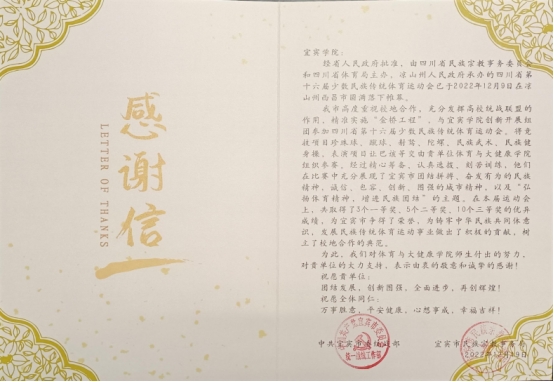 感谢信
LETTER OF THANKS
宜宾学院:
经省人民政府批准,由四川省民族宗教事务委员会
和四川省体育局主办、凉山州人民政府承办的四川省第
十六届少数民族传统体育运动会已于2022年12月9日在凉
山州西昌市圆满落下帷幕。
我市高度重视校地合作,充分发挥高校统战联盟的
作用,精准实施
为宜宾学院创新开展组
团参加四川省第十六届少数民族传统体育运动会,得竞
技项目珍珠球、蹴球、射弩、陀螺、民族武术、民族健
身操、表演项目让巴该等交由贵单位体育与大健康学院
组织参赛。经过精心筹备、认真选拔、刻苦训练,他们
在比赛中充分展现了宜宾市团结拼搏、奋发有为的民族
精神,诚信、包容、创新、图强的城市精神,以及“弘
扬体育精神,增进民族团结”的主题,在本届运动会
上,共取得了3个一等奖、5个二等奖、10个三等奖的优异
成绩,为宜宾市争得了荣誉,为铸牢中华民族共同体意
识,发展民族传统体育运动事业做出了积极的贡献,树
立了校地合作的典范。
为此,我们对体育与大健康学院师生付出的努力,
对贵单位的大力支持,表示由衷的敬意和诚挚的感谢!
祝愿贵单位:
团结发展,创新图强,全面进步,再创辉煌!
祝愿全体同仁:
万事胜意,平安健康,心想事成,幸福吉祥!
中共宜宾市委统战部 宜宾市民族宗教事务局
2022年12月19日
统一战线工作部